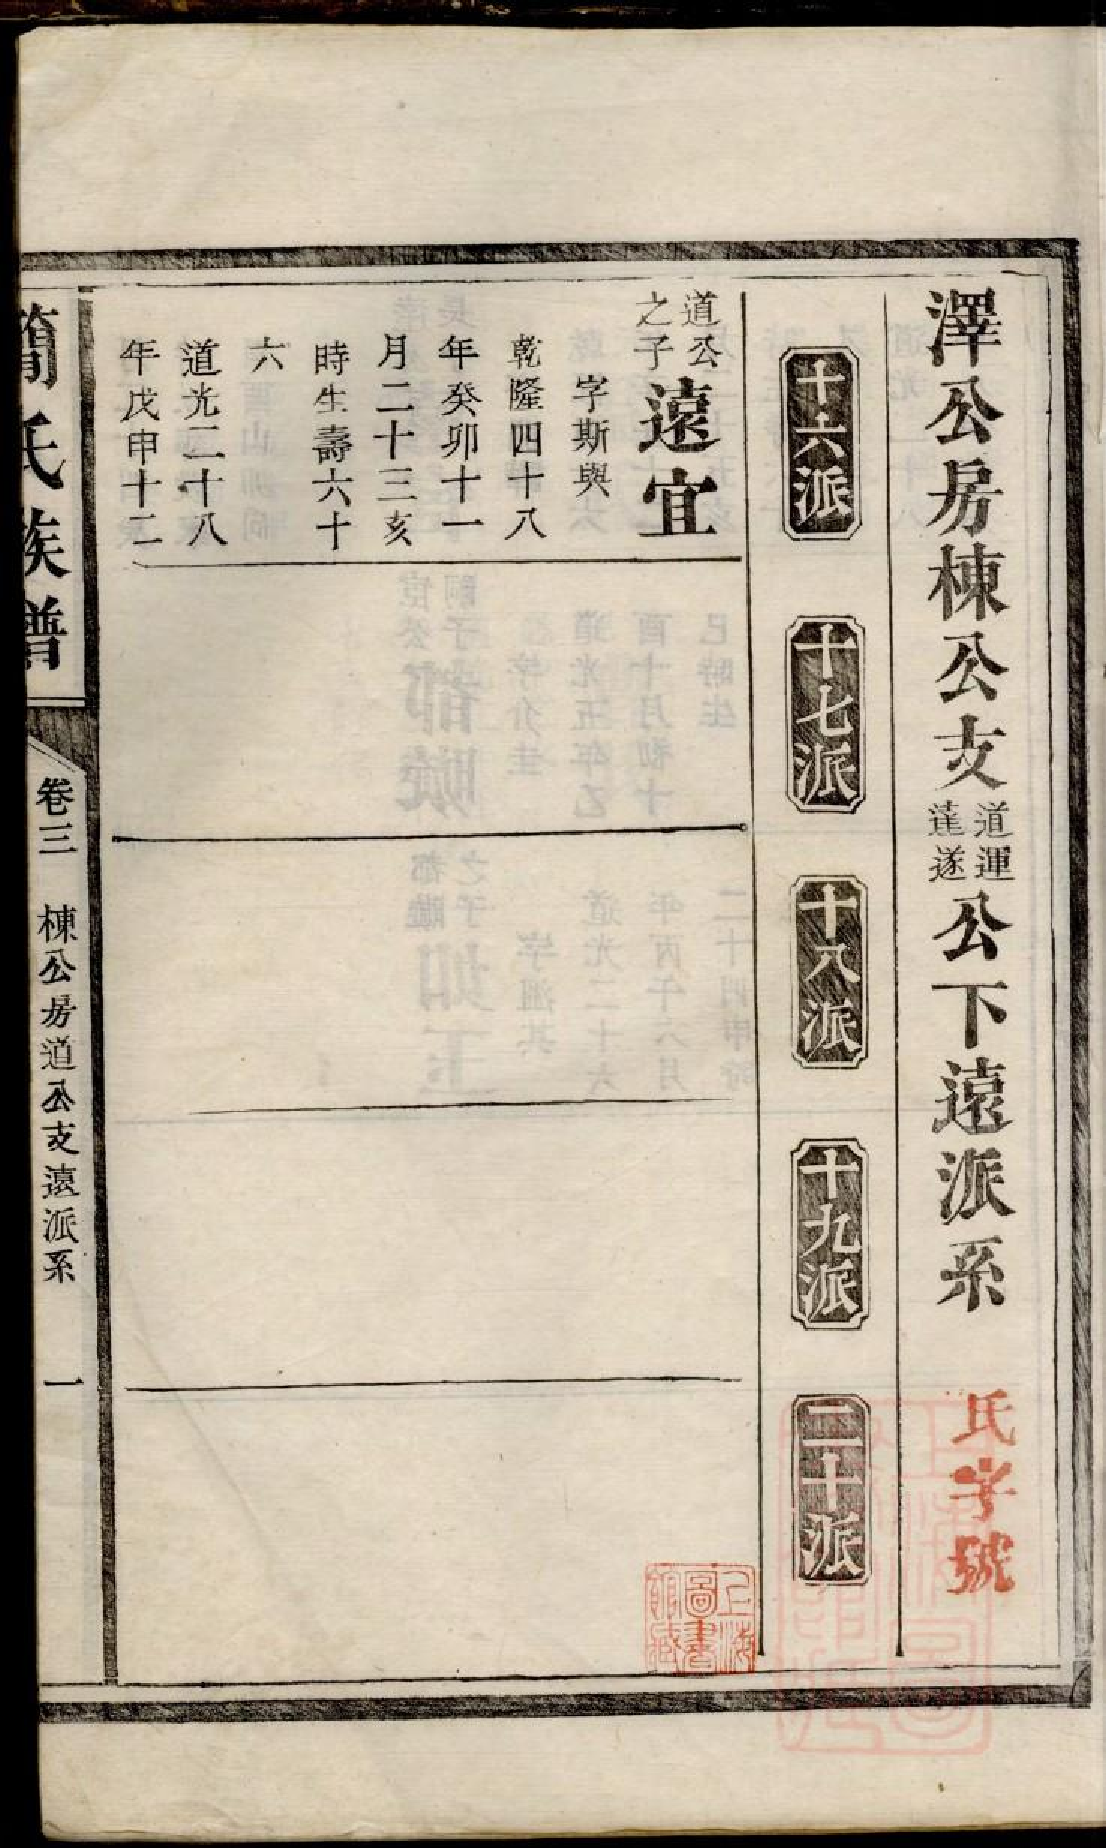 澤公房棟公支道運蓬遂公下遠派系
氏字號
十六派
十七派
十八派
十九派
二十派
道公之子遠宜
字斯與
乾隆四十八
年癸卯十一
月二十三亥
時生壽六十
六
道光二十八
年戊申十二
簡氏族譜
卷三 棟公房道公支遠派系 一
上海圖書館藏